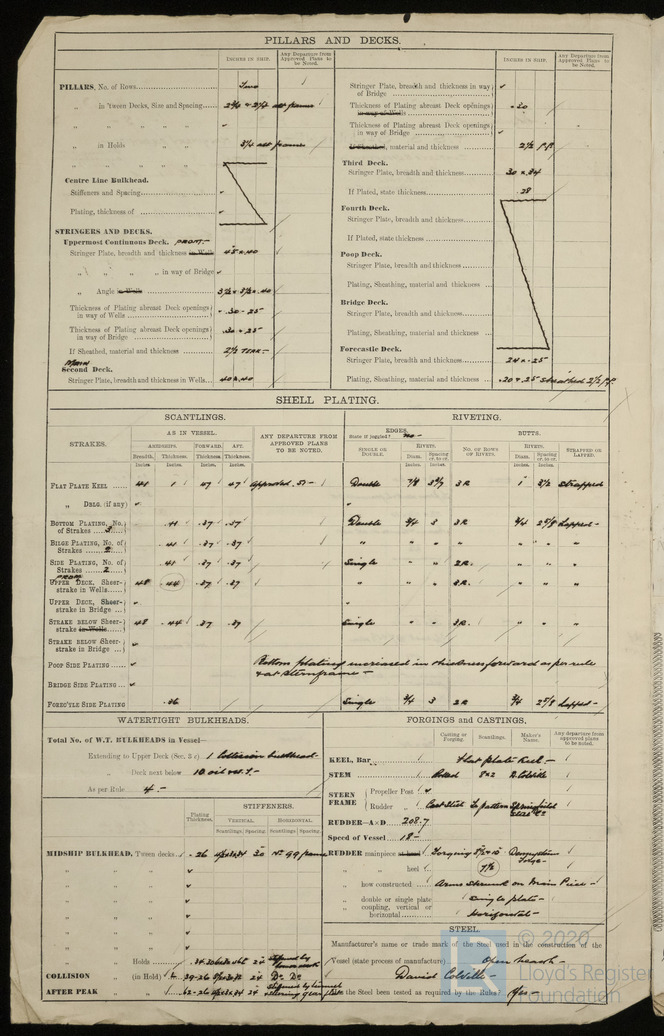 PILLARS AND DECKS.
INCHES IN SHIP.
Any Departure from Approved Plans to be Noted.
PILLARS, No. of Rows
Two
„ in 'tween Decks, Size and Spacing
„ in Holds
Centre Line Bulkhead.
Stiffeners and Spacing
Plating, thickness of
STRINGERS AND DECKS.
Uppermost Continuous Deck. PROM:-
Stringer Plate, breadth and thickness in Wells
48 x .40
„ „ „ „ in way of Bridge
„ Angle in Wells
3½ x 3½ x .40
Thickness of Plating abreast Deck openings in way of Wells
.30 - .25
Thickness of Plating abreast Deck openings in way of Bridge
.30 x .25
If Sheathed, material and thickness
2½ TEAK-
MAIN
Second Deck.
Stringer Plate, breadth and thickness in Wells
40 x .40
INCHES IN SHIP.
Any Departure from Approved Plans to be Noted.
Stringer Plate, breadth and thickness in way of Bridge
Thickness of Plating abreast Deck openings in way of Wells
.20
Thickness of Plating abreast Deck openings in way of Bridge
If Sheathed, material and thickness
2½ P.P.
Third Deck.
Stringer Plate, breadth and thickness
30 x .34
If Plated, state thickness
.28
Fourth Deck.
Stringer Plate, breadth and thickness
If Plated, state thickness
Poop Deck.
Stringer Plate, breadth and thickness
Plating, Sheathing, material and thickness
Bridge Deck.
Stringer Plate, breadth and thickness
Plating, Sheathing, material and thickness
Forecastle Deck.
Stringer Plate, breadth and thickness
24 x .25
Plating, Sheathing, material and thickness
.20 & .25 sheathed 2½ P.P.
SHELL PLATING.
SCANTLINGS.
RIVETING.
STRAKES.
AS IN VESSEL.
AMIDSHIPS. FORWARD. AFT.
Breadth. Thickness. Thickness. Thickness.
Inches. Inches. Inches. Inches.
ANY DEPARTURE FROM APPROVED PLANS TO BE NOTED.
EDGES.
State if joggled? no
SINGLE OR DOUBLE.
RIVETS.
Diam. Spacing cr. to cr.
BUTTS.
NO. OF ROWS OF RIVETS.
RIVETS.
Diam. Spacing cr. to cr.
STRAPPED OR LAPPED.
FLAT PLATE KEEL 48 1 .47 .47 Approved .51 - Double 7/8 3R 1 3½ strapped
„ DBLG. (if any)
BOTTOM PLATING, No. of Strakes 3 .41 .37 .37 Double ¾ 3 3R ¾ 2⅝ Lapped-
BILGE PLATING, No. of Strakes 2 .41 .37 .37 „ „ „ „ „ „ „
SIDE PLATING, No. of Strakes 2 .41 .37 .37 Single „ „ 2R. „ „ „
PROM
UPPER DECK, Sheerstrake in Wells 48 .44 .37 .37 „ „ „ 3R. „ „ „
UPPER DECK, Sheerstrake in Bridge
STRAKE BELOW Sheerstrake in Wells 48 .44 .37 .37 Single „ „ 3R. „ „ „
STRAKE BELOW Sheerstrake in Bridge
POOP SIDE PLATING
Bottom plating increased in thickness forward as per rule
& at sternframe -
BRIDGE SIDE PLATING
FOREC'TLE SIDE PLATING .36 Single ¾ 3 2R ¾ 2⅝ Lapped-
WATERTIGHT BULKHEADS.
Total No. of W.T. BULKHEADS in Vessel-
Extending to Upper Deck (Sec. 3 c) 1 Collision bulkhead-
„ Deck next below 10 oil &c. T.-
As per Rule 4.-
STIFFENERS.
Plating Thickness.
VERTICAL.
HORIZONTAL.
Scantlings. Spacing. Scantlings. Spacing.
MIDSHIP BULKHEAD, 'Tween decks .26 30
Holds 24
COLLISION „ (in Hold) .39-.26 24 Do. Do.
AFTER PEAK „ „ .62-.26 24
FORGINGS AND CASTINGS.
Casting or Forging. Scantlings. Maker's Name. Any departure from approved plans to be noted.
KEEL, Bar flat plate keel -
STEM Rolled 8 x 2 D. Colville
STERN FRAME Propeller Post
Rudder „ Cast Steel To pattern Springfield Steel Co
RUDDER-A×D 208.7
Speed of Vessel 18-
RUDDER mainpiece at head Forging
„ „ heel 7½
„ how constructed Arms shrunk on Main Piece -
„ double or single plate Single plate -
„ coupling, vertical or horizontal Horizontal -
STEEL.
Manufacturer's name or trade mark of the Steel used in the construction of the
Vessel (state process of manufacture) Open hearth -
David Colville -
Has the Steel been tested as required by the Rules? Yes -
© 2020
LR
Lloyd's Register
Foundation